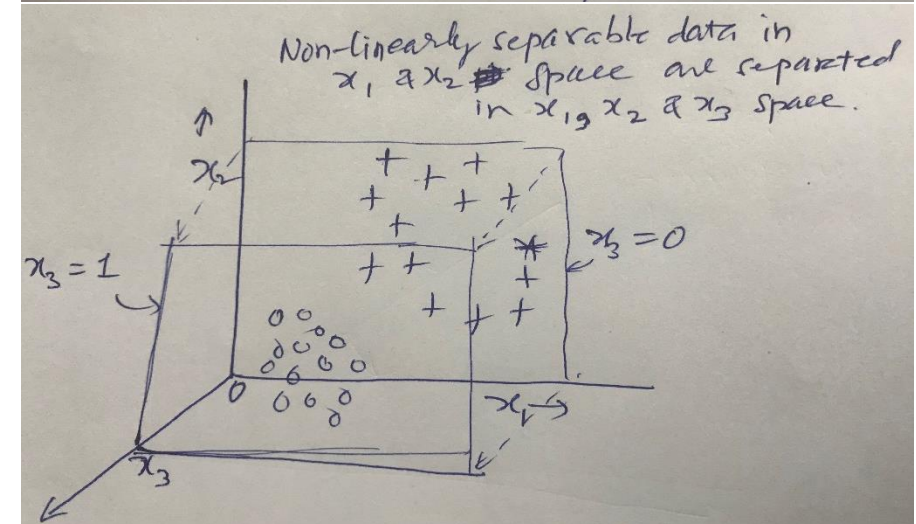 Non-linearly separable data in
x₁ & x₂ space are separeted
in x₁, x₂ & x₃ space.
x₂
x₃ = 0
x₃ = 1
0
x₁
x₃